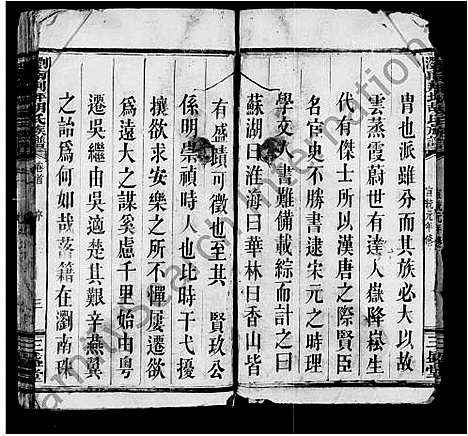 冑也派雖分而其族必大以故
雲蒸霞蔚世有達人嶽降崧生
代有傑士所以漢唐之際賢臣
名宦史不勝書逮宋元之時理
學交人書難備載綜而計之曰
蘇湖曰淮海曰華林曰香山皆
有盛蹟可徵也至其 賢玖公
係明崇禎時人也比時干戈擾
攘欲求安樂之所不憚屢遷欲
為遠大之謀奚慮千里始由粵
遷吳繼由吳適楚其艱辛燕翼
之詒為何如哉落籍在瀏南珠
卷首
序
三